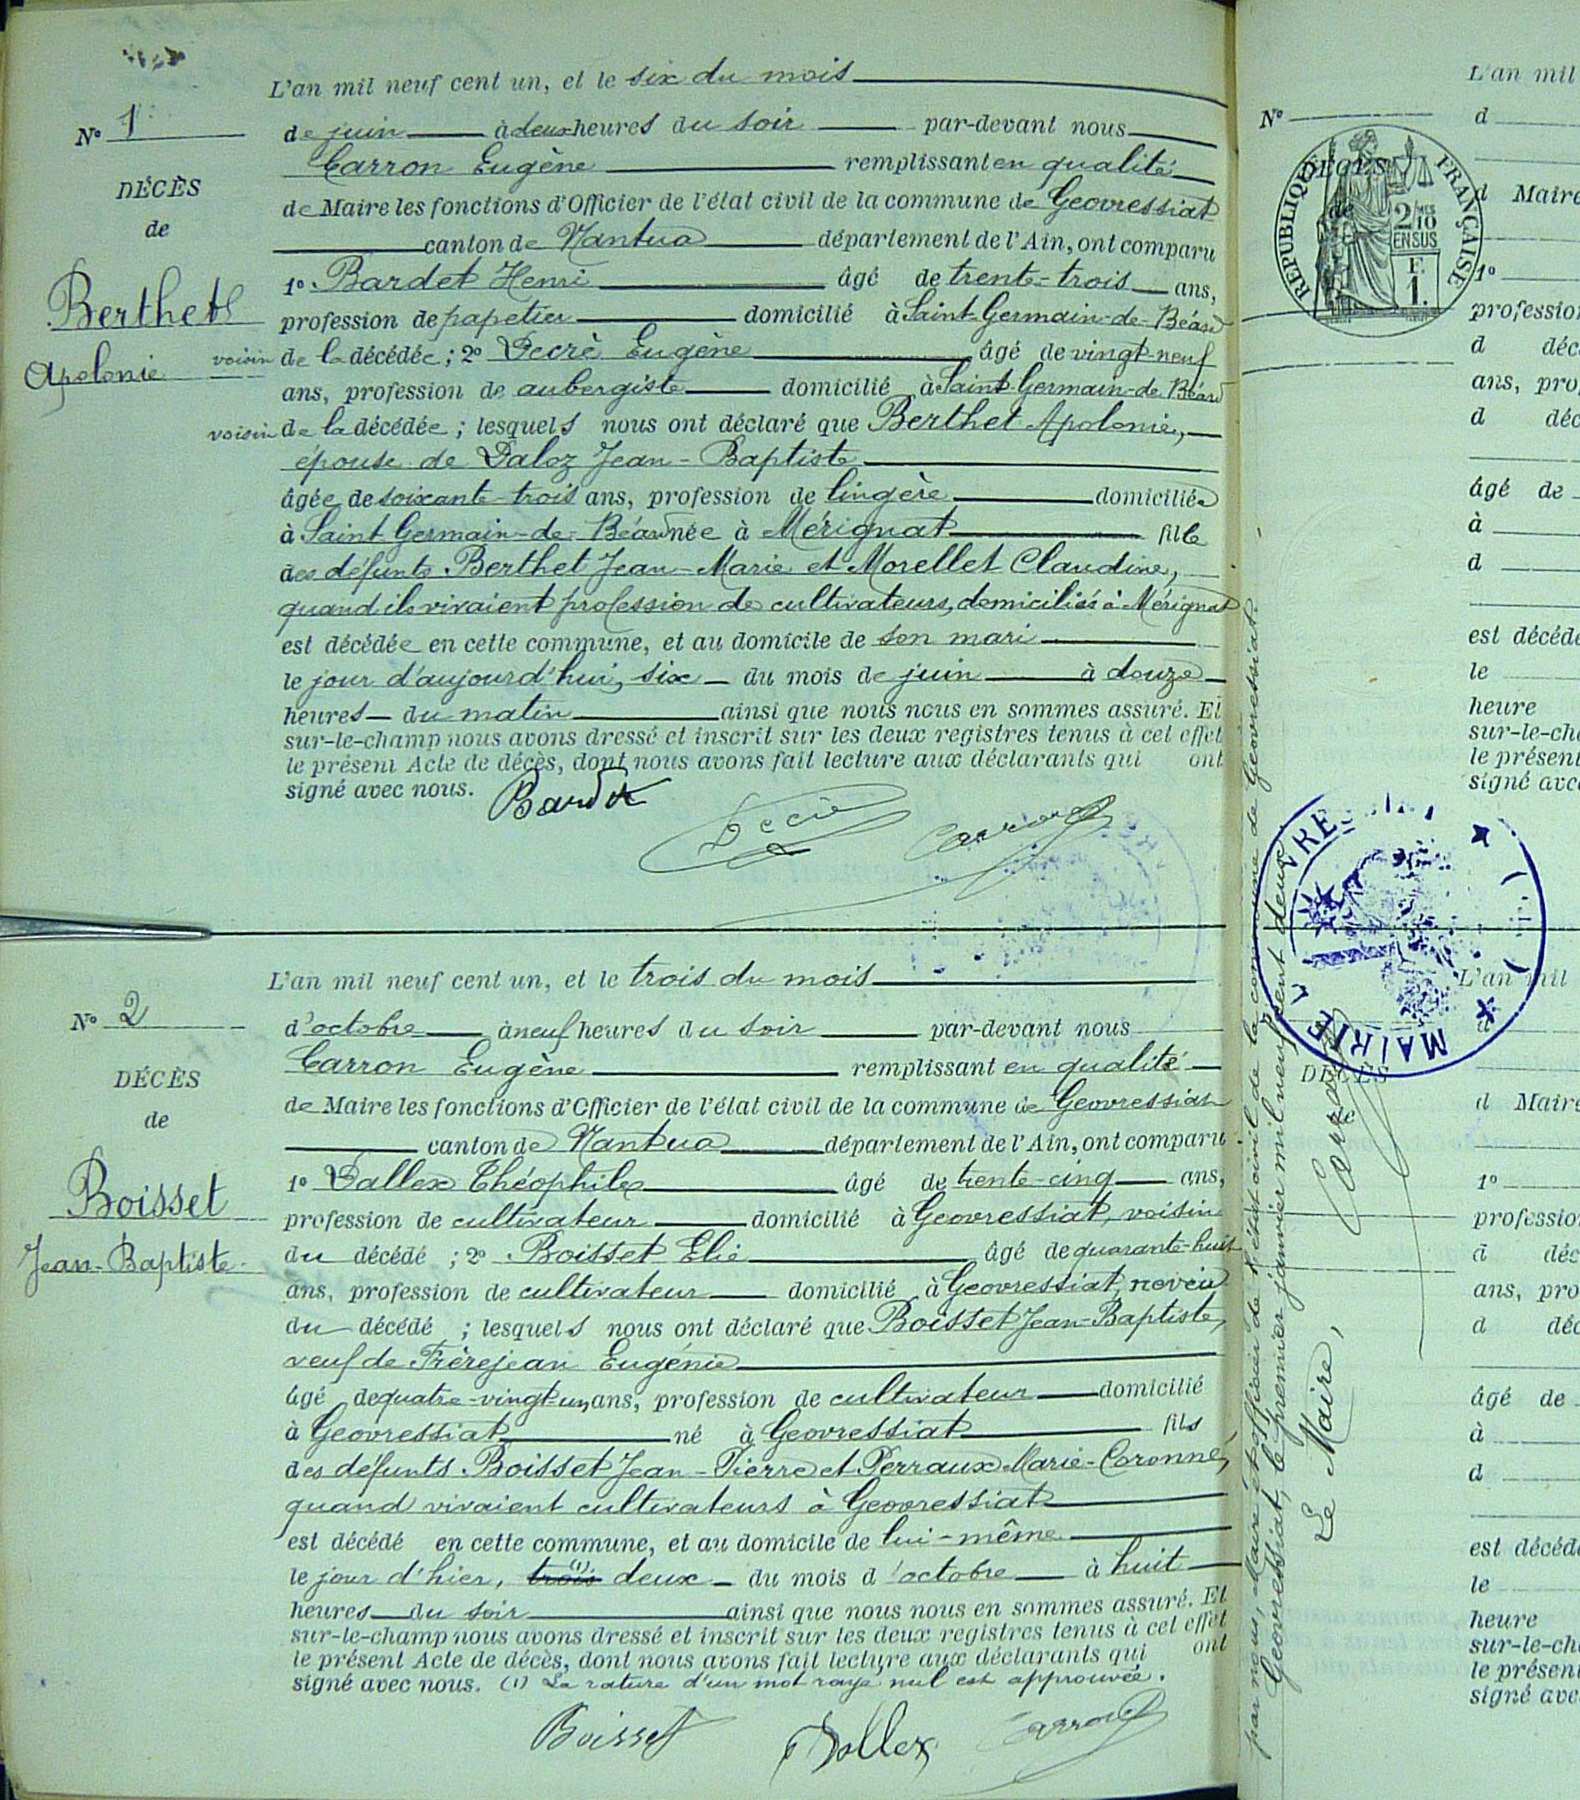 L'an mil neuf cent un, et le six du mois
N° 1
de juin à deux heures du soir par-devant nous
Carron Eugène remplissant en qualité
DÉCÈS
de Maire les fonctions d'Officier de l'état civil de la commune de Geovressiat
de
canton de Nantua département de l'Ain, ont comparu
1° Bardet Henri âgé de trente-trois ans,
Berthet
profession de papetier domicilié à Saint-Germain-de-Béard
voisin de la décédée ; 2° Decrè Eugène âgé de vingt-neuf
Apolonie
ans, profession de aubergiste domicilié à Saint-Germain-de-Béard
voisin de la décédée ; lesquels nous ont déclaré que Berthet Apolonie,
épouse de Daloz Jean-Baptiste
âgée de soixante-trois ans, profession de lingère domiciliée
à Saint Germain-de-Béard née à Mérignat fille
des défunts Berthet Jean-Marie et Morellet Claudine,
quand ils vivaient profession de cultivateurs, domiciliés à Mérignat
est décédée en cette commune, et au domicile de son mari
le jour d'aujourd'hui, six du mois de juin à douze
heures du matin ainsi que nous nous en sommes assuré. Et
sur-le-champ nous avons dressé et inscrit sur les deux registres tenus à cet effet
le présent Acte de décès, dont nous avons fait lecture aux déclarants qui ont
signé avec nous.
Bardet
Carron
L'an mil neuf cent un, et le trois du mois
N° 2
d'octobre à neuf heures du soir par-devant nous
Carron Eugène remplissant en qualité
DÉCÈS
de Maire les fonctions d'Officier de l'état civil de la commune de Geovressiat
de
canton de Nantua département de l'Ain, ont comparu
1° Dallex Théophile âgé de trente-cinq ans,
Boisset
profession de cultivateur domicilié à Geovressiat, voisin
du décédé ; 2° Boisset Elie âgé de quarante-huit
Jean-Baptiste
ans, profession de cultivateur domicilié à Geovressiat, neveu
du décédé ; lesquels nous ont déclaré que Boisset Jean-Baptiste,
veuf de Frèrejean Eugénie
âgé de quatre-vingt-un ans, profession de cultivateur domicilié
à Geovressiat né à Geovressiat fils
des défunts Boisset Jean-Pierre et Perraux Marie-Coronné,
quand vivaient cultivateurs à Geovressiat
est décédé en cette commune, et au domicile de lui-même
le jour d'hier, trois (1) deux du mois d'octobre à huit
heures du soir ainsi que nous nous en sommes assuré. Et
sur-le-champ nous avons dressé et inscrit sur les deux registres tenus à cet effet
le présent Acte de décès, dont nous avons fait lecture aux déclarants qui ont
signé avec nous. (1) La rature d'un mot rayé nul est approuvée.
Boisset Dallex Carron
par nous, Maire et officier de l'état civil de la commune de Geovressiat.
Geovressiat, le premier janvier mil neuf cent deux
Le Maire,
Carron
L'an mil
N°
d
RÉPUBLIQUE FRANÇAISE
2/10 EN SUS
F.
1.
DÉCÈS
de
d Maire
1°
profession
d déc
ans, pro
d déc
âgé de
à
d
est décédé
le
heure
sur-le-ch
le présent
signé avec
MAIRIE
L'an mil
d
DÉCÈS
de
d Maire
1°
profession
d déc
ans, pro
d déc
âgé de
à
d
est décédé
le
heure
sur-le-ch
le présent
signé avec